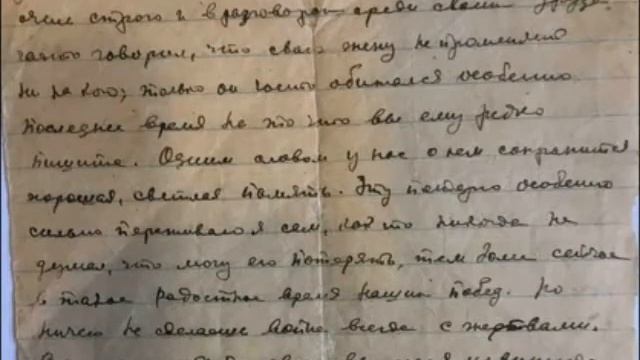 очень строго и в разговорах среди своих друзей
часто говорил, что свою жену не променяет
ни на кого; только он часто обижался особенно
последнее время на то что вы ему редко
пишите. Одним словом у нас о нем сохранится
хорошая, светлая память. Эту потерю особенно
сильно переживаю я сам, как то никогда не
думал, что могу его потерять, тем более сейчас
в такое радостное время наших побед. Но
ничего не сделаеш война всегда с жертвами.